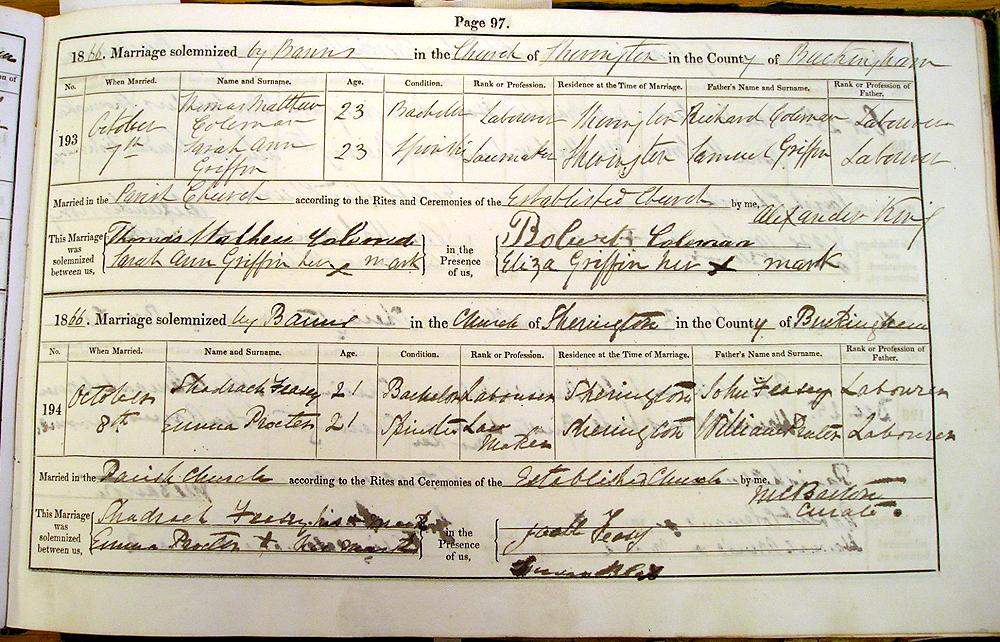 Page 97.
1866. Marriage solemnized by Banns in the Church of Sherington in the County of Buckingham
No. When Married. Name and Surname. Age. Condition. Rank or Profession. Residence at the Time of Marriage. Father's Name and Surname. Rank or Profession of Father.
193 October 7th
Thomas Matthew Coleman 23 Bachelor Labourer Sherington Richard Coleman Labourer
Sarah Ann Griffin 23 Spinster Lacemaker Sherington Samuel Griffin Labourer
Married in the Parish Church according to the Rites and Ceremonies of the Established Church by me, Alexander King
This Marriage was solemnized between us, Thomas Mathew Colemad in the Presence of us, Robert Coleman
Sarah Ann Griffin her x mark Eliza Griffin her x mark
1866. Marriage solemnized by Banns in the Church of Sherington in the County of Buckingham
No. When Married. Name and Surname. Age. Condition. Rank or Profession. Residence at the Time of Marriage. Father's Name and Surname. Rank or Profession of Father.
194 October 8th
Shadrach Feasey 21 Bachelor Labourer Sherington John Feasey Labourer
Emma Procter 21 Spinster Lace Maker Sherington William Procter Labourer
Married in the Parish Church according to the Rites and Ceremonies of the Established Church by me, Curate
This Marriage was solemnized between us, Shadrach Feasey his x mark in the Presence of us, Feasy
Emma Procter x her mark